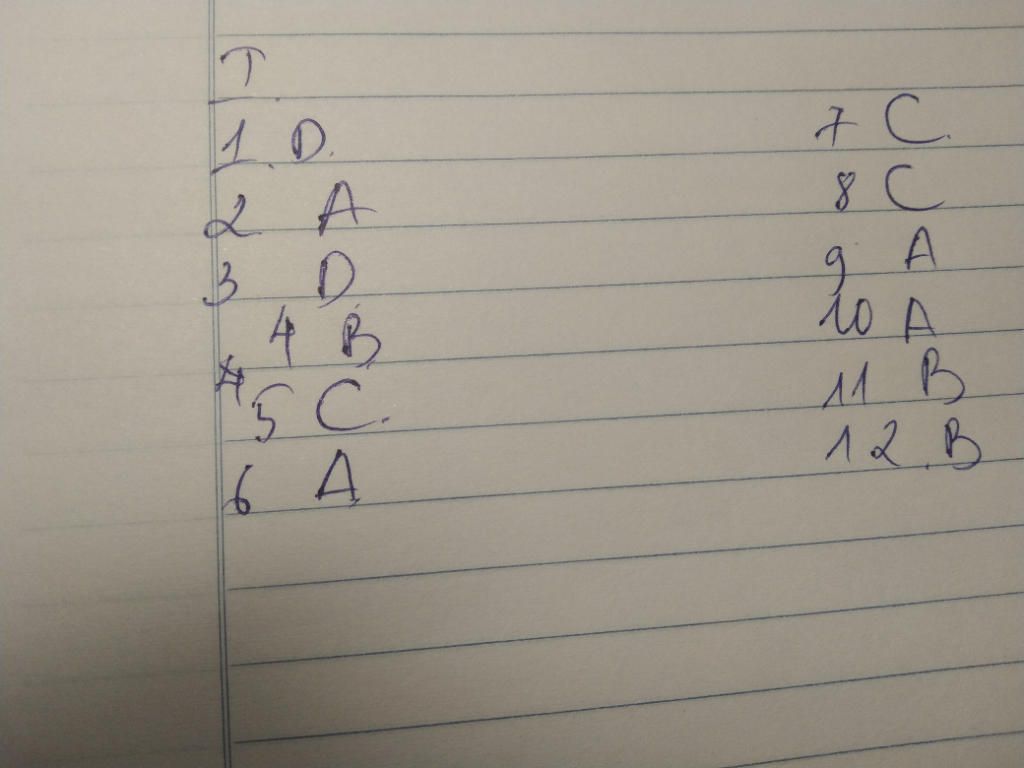 T
1. D.
2 A
3 D
4 B
5 C.
6 A
7 C.
8 C
9 A
10 A
11 B
12. B